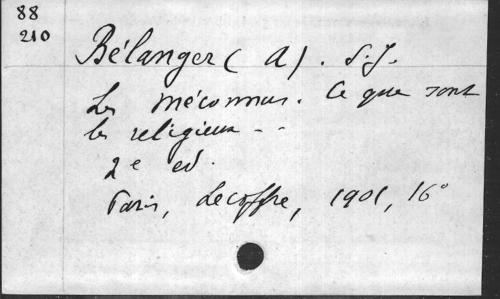 88
210
Bélanger (A). S.J.
Les méconnus. Ce que sont
les religieux - -
2e ed.
Paris, Lecoffre, 1901, 16°